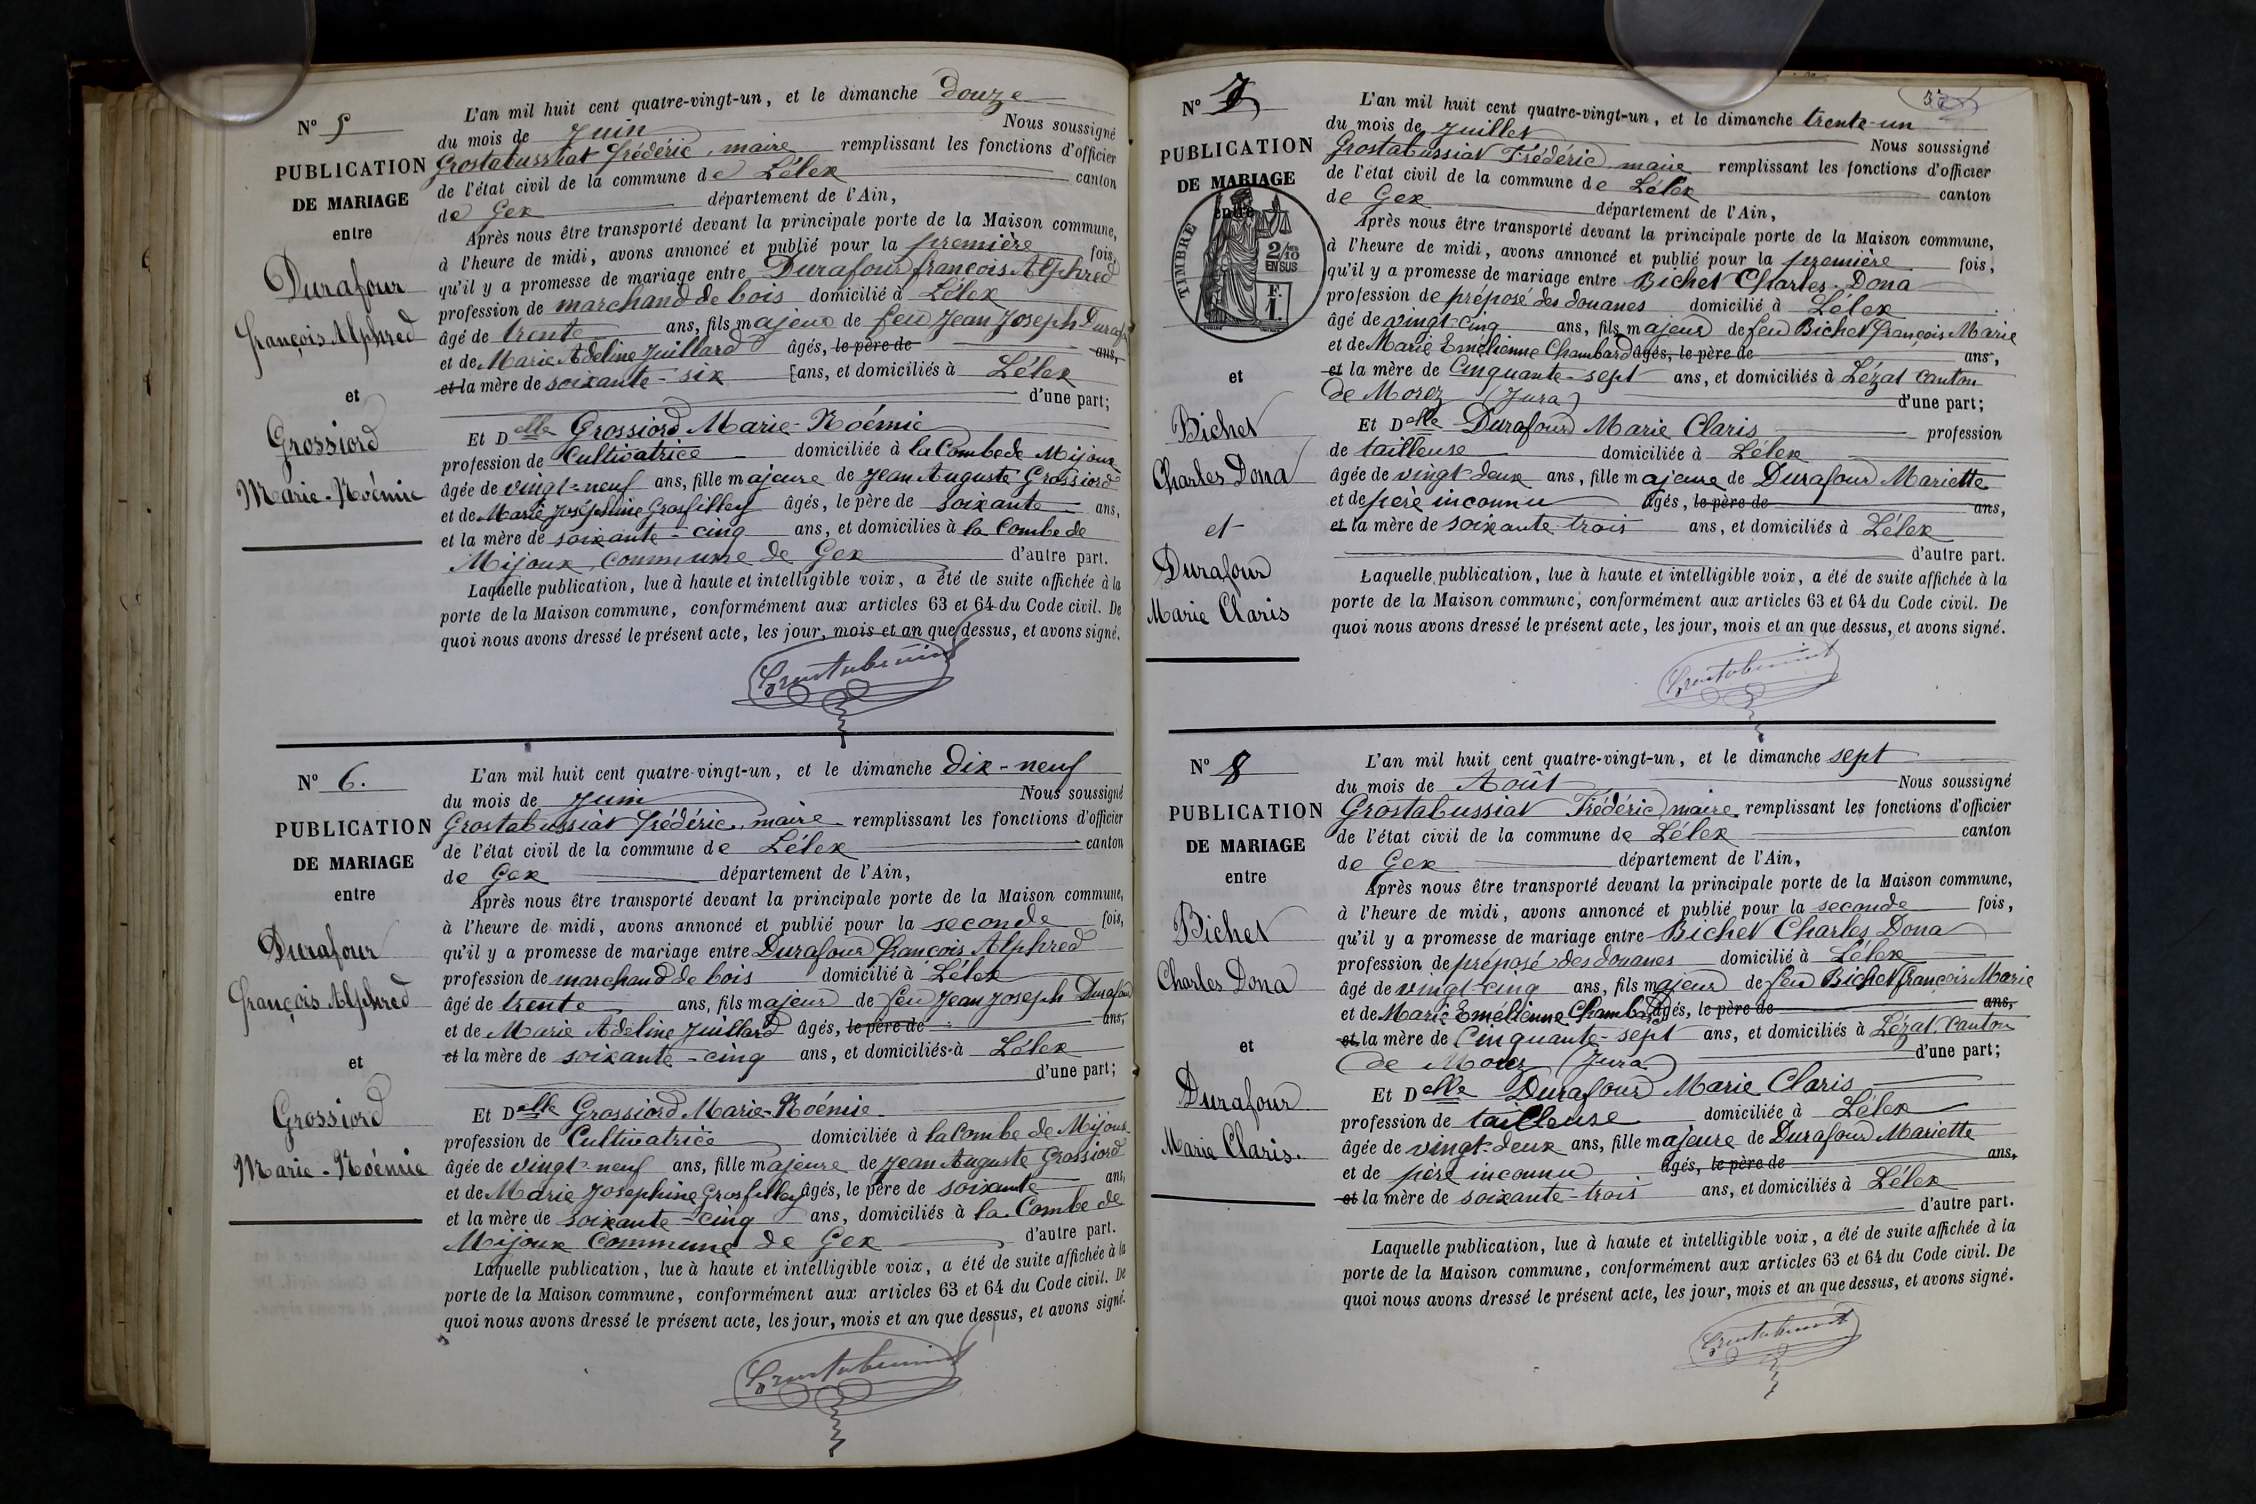 N° 5
PUBLICATION
DE MARIAGE
entre
Durafour
françois Alphred
et
Grossiord
Marie-Noémie
L'an mil huit cent quatre-vingt-un, et le dimanche douze
du mois de Juin Nous soussigné
Grostabussiat frédéric, maire remplissant les fonctions d'officier
de l'état civil de la commune de Lélex canton
de Gex département de l'Ain,
Après nous être transporté devant la principale porte de la Maison commune,
à l'heure de midi, avons annoncé et publié pour la première fois,
qu'il y a promesse de mariage entre Durafour françois Alphred
profession de marchand de bois domicilié à Lélex
âgé de trente ans, fils majeur de feu Jean Joseph Durafour
et de Marie Adeline Juillard âgés, le père de ans,
et la mère de soixante-six [ans, et domiciliés à Lélex
d'une part;
Et Delle Grossiord Marie-Noémie
profession de Cultivatrice domiciliée à la Combe de Mijoux
âgée de vingt-neuf ans, fille majeure de Jean Auguste Grossiord
et de Marie Joséphine Grosfilley âgés, le père de soixante ans,
et la mère de soixante-cinq ans, et domiciliés à la Combe de
Mijoux, commune de Gex d'autre part.
Laquelle publication, lue à haute et intelligible voix, a été de suite affichée à la
porte de la Maison commune, conformément aux articles 63 et 64 du Code civil. De
quoi nous avons dressé le présent acte, les jour, mois et an que dessus, et avons signé.
N° 6.
PUBLICATION
DE MARIAGE
entre
Durafour
françois Alphred
et
Grossiord
Marie-Noémie
L'an mil huit cent quatre-vingt-un, et le dimanche dix-neuf
du mois de Juin Nous soussigné
Grostabussiat frédéric, maire remplissant les fonctions d'officier
de l'état civil de la commune de Lélex canton
de Gex département de l'Ain,
Après nous être transporté devant la principale porte de la Maison commune,
à l'heure de midi, avons annoncé et publié pour la seconde fois,
qu'il y a promesse de mariage entre Durafour françois Alphred
profession de marchand de bois domicilié à Lélex
âgé de trente ans, fils majeur de feu Jean Joseph Durafour
et de Marie Adeline Juillard âgés, le père de ans,
et la mère de soixante-cinq ans, et domiciliés à Lélex
d'une part;
Et Delle Grossiord Marie-Noémie
profession de Cultivatrice domiciliée à la Combe de Mijoux
âgée de vingt-neuf ans, fille majeure de Jean Auguste Grossiord
et de Marie Josephine Grosfilley âgés, le père de soixante ans,
et la mère de soixante-cinq ans, domiciliés à la Combe de
Mijoux Commune de Gex d'autre part.
Laquelle publication, lue à haute et intelligible voix, a été de suite affichée à la
porte de la Maison commune, conformément aux articles 63 et 64 du Code civil. De
quoi nous avons dressé le présent acte, les jour, mois et an que dessus, et avons signé.
N° 7
PUBLICATION
DE MARIAGE
entre
TIMBRE
2/10
EN SUS
F.
1.
et
Bichet
Charles Dona
et
Durafour
Marie Claris
L'an mil huit cent quatre-vingt-un, et le dimanche trente-un
du mois de Juillet Nous soussigné
Grostabussiat Frédéric, maire remplissant les fonctions d'officier
de l'état civil de la commune de Lélex canton
de Gex département de l'Ain,
Après nous être transporté devant la principale porte de la Maison commune,
à l'heure de midi, avons annoncé et publié pour la première fois,
qu'il y a promesse de mariage entre Bichet Charles Dona
profession de préposé des douanes domicilié à Lélex
âgé de vingt-cinq ans, fils majeur de feu Bichet françois Marie
et de Marie Emélienne Chambard âgés, le père de ans,
et la mère de Cinquante-sept ans, et domiciliés à Lézat canton
de Morez (Jura) d'une part;
Et Delle Durafour Marie Claris profession
de tailleuse domiciliée à Lélex
âgée de vingt-deux ans, fille majeure de Durafour Mariette
et de père inconnu âgés, le père de ans,
et la mère de soixante-trois ans, et domiciliés à Lélex
d'autre part.
Laquelle publication, lue à haute et intelligible voix, a été de suite affichée à la
porte de la Maison commune, conformément aux articles 63 et 64 du Code civil. De
quoi nous avons dressé le présent acte, les jour, mois et an que dessus, et avons signé.
N° 8
PUBLICATION
DE MARIAGE
entre
Bichet
Charles Dona
et
Durafour
Marie Claris.
L'an mil huit cent quatre-vingt-un, et le dimanche sept
du mois de Août Nous soussigné
Grostabussiat Frédéric, maire remplissant les fonctions d'officier
de l'état civil de la commune de Lélex canton
de Gex département de l'Ain,
Après nous être transporté devant la principale porte de la Maison commune,
à l'heure de midi, avons annoncé et publié pour la seconde fois,
qu'il y a promesse de mariage entre Bichet Charles Dona
profession de préposé des douanes domicilié à Lélex
âgé de vingt-cinq ans, fils majeur de feu Bichet françois Marie
et de Marie Emélienne Chambard âgés, le père de ans,
et la mère de Cinquante-sept ans, et domiciliés à Lézat, canton
de Morez (Jura) d'une part;
Et Delle Durafour Marie Claris
profession de tailleuse domiciliée à Lélex
âgée de vingt-deux ans, fille majeure de Durafour Mariette
et de père inconnu âgés, le père de ans,
et la mère de soixante-trois ans, et domiciliés à Lélex
d'autre part.
Laquelle publication, lue à haute et intelligible voix, a été de suite affichée à la
porte de la Maison commune, conformément aux articles 63 et 64 du Code civil. De
quoi nous avons dressé le présent acte, les jour, mois et an que dessus, et avons signé.